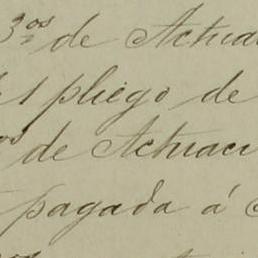 3.os de Actuac
1 pliego de
os de Actuaci
pagada á